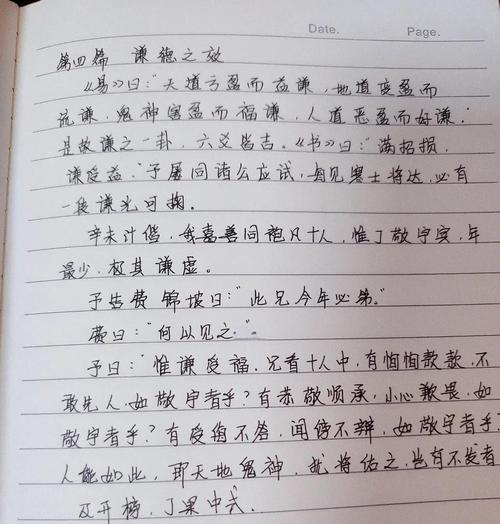 Date. Page.
第四篇 谦德之效
《易》曰:"天道亏盈而益谦,地道变盈而
流谦,鬼神害盈而福谦,人道恶盈而好谦."
是故谦之一卦,六爻皆吉。《书》曰:"满招损,
谦受益."予屡同诸公应试,每见寒士将达,必有
一段谦光可掬。
辛未计偕,我嘉善同袍凡十人,惟丁敬宇宾,年
最少,极其谦虚。
予告费锦坡曰:"此兄今年必第."
费曰:"何以见之".
予曰:"惟谦受福.兄看十人中,有恂恂款款,不
敢先人,如敬宇者乎?有恭敬顺承,小心谦畏,如
敬宇者乎?有受侮不答,闻谤不辩,如敬宇者乎?
人能如此,即天地鬼神,犹将佑之,岂有不发者
及开榜,丁果中式.